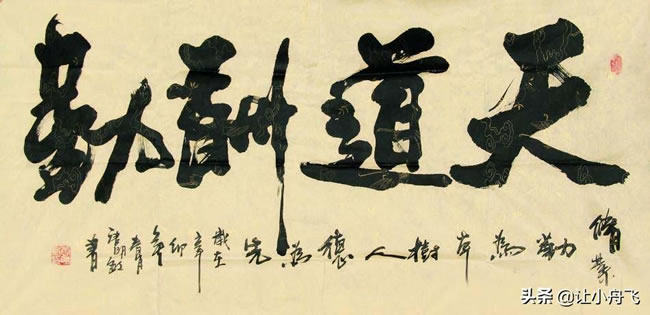 天道酬勤
脩業勤為樹人德為先
歲在辛卯年春月書
头条 @让小舟飞